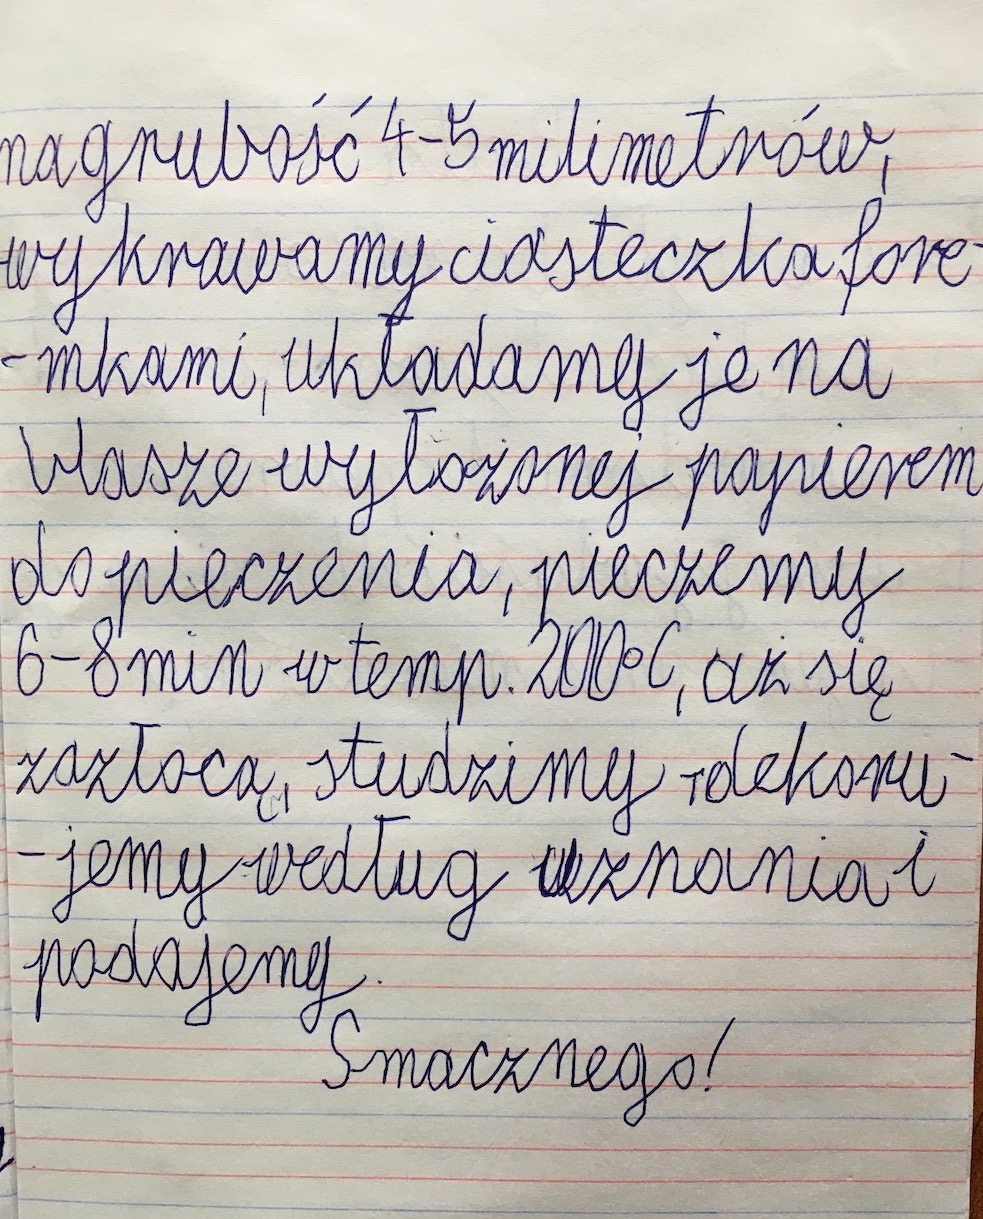 na grubość 4-5 milimetrów,
wykrawamy ciasteczka fore-
-mkami, układamy je na
blasze wyłożonej papierem
do pieczenia, pieczemy
6-8 min w temp. 200°C, aż się
zazłocą, studzimy dekoru-
-jemy według uznania i
podajemy.
Smacznego!